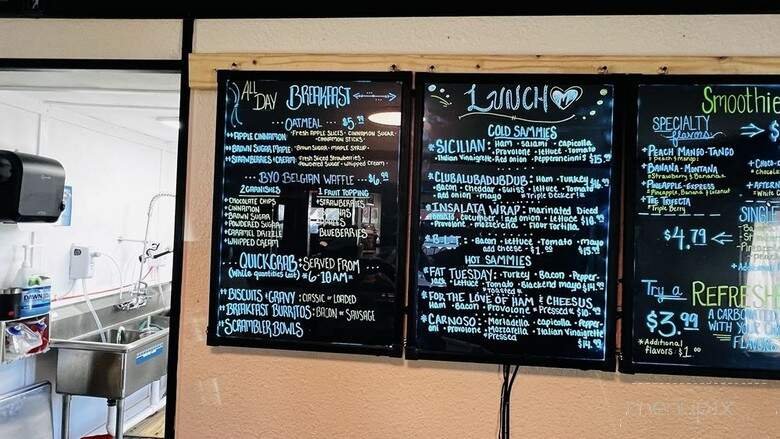 ALL DAY
BREAKFAST
OATMEAL $5
*APPLE CINNAMON FRESH APPLE SLICES · CINNAMON SUGAR
CINNAMON STICKS
*BROWN SUGAR MAPLE BROWN SUGAR · MAPLE SYRUP
*STRAWBERRIES CREAM Fresh Sliced Strawberries
Powdered Sugar Whipped Cream
BYO BELGIAN WAFFLE $6.99
2 GARNISHES
* CHOCOLATE CHIPS
* CINNAMON
* BROWN SUGAR
* POWDERED SUGAR
* CARAMEL DRIZZLE
* WHIPPED CREAM
1 FRUIT TOPPING
* STRAWBERRIES
BLUEBERRIES
QUICK GRAB: SERVED FROM
(While Quantities last) 6-10AM
** BISCUITS & GRAVY CLASSIC or LOADED
** BREAKFAST BURRITOS: BACON or SAUSAGE
** SCRAMBLER BOWLS
LUNCH
COLD SAMMIES
*SICILIAN: Ham · Salami · Capicolla
Provolone · Lettuce · Tomato
Italian Vinaigrette · Red onion · Pepperoncini's $15.99
*CLUBALUBADUBDUB: Ham · Turkey
Bacon · Cheddar · Swiss · Lettuce · Tomato
Red onion · Mayo * Triple Decker!
*INSALATA WRAP: marinated Diced
Tomato, cucumber, and onion · Lettuce
Provolone · Mozzerella · Flour Tortilla
*B·L·T: Bacon · Lettuce · Tomato · Mayo
add Cheese $1
HOT SAMMIES
*FAT TUESDAY: Turkey · Bacon · Pepper-
jack · Lettuce · Tomato · Blackend mayo $14.99
*Toasted*
*FOR THE LOVE OF HAM & CHEESUS
Ham · Bacon · Provolone * Pressed *
*CARNOSO: Mortadella · Capicolla · Pepper-
oni · Provolone · Mozzarella · Italian Vinaigrette
*Pressed $14.99
Smoothie
SPECIALTY
flavors
*PEACH MANGO-TANGO
Peach & Mango
*BANANA-MONTANA
Strawberry & Banana
*PINEAPPLE-EXPRESS
Pineapple, Banana & Coconut
*THE TRIFECTA
Triple Berry
$4.79
* CHO
chocola
* AFTER
White C
SINGL
Additional
Try a REFRESH
$3.99
A CARBONATED
WITH YOUR
FLAVOR
*Additional
flavors $1
DAWN
menupix